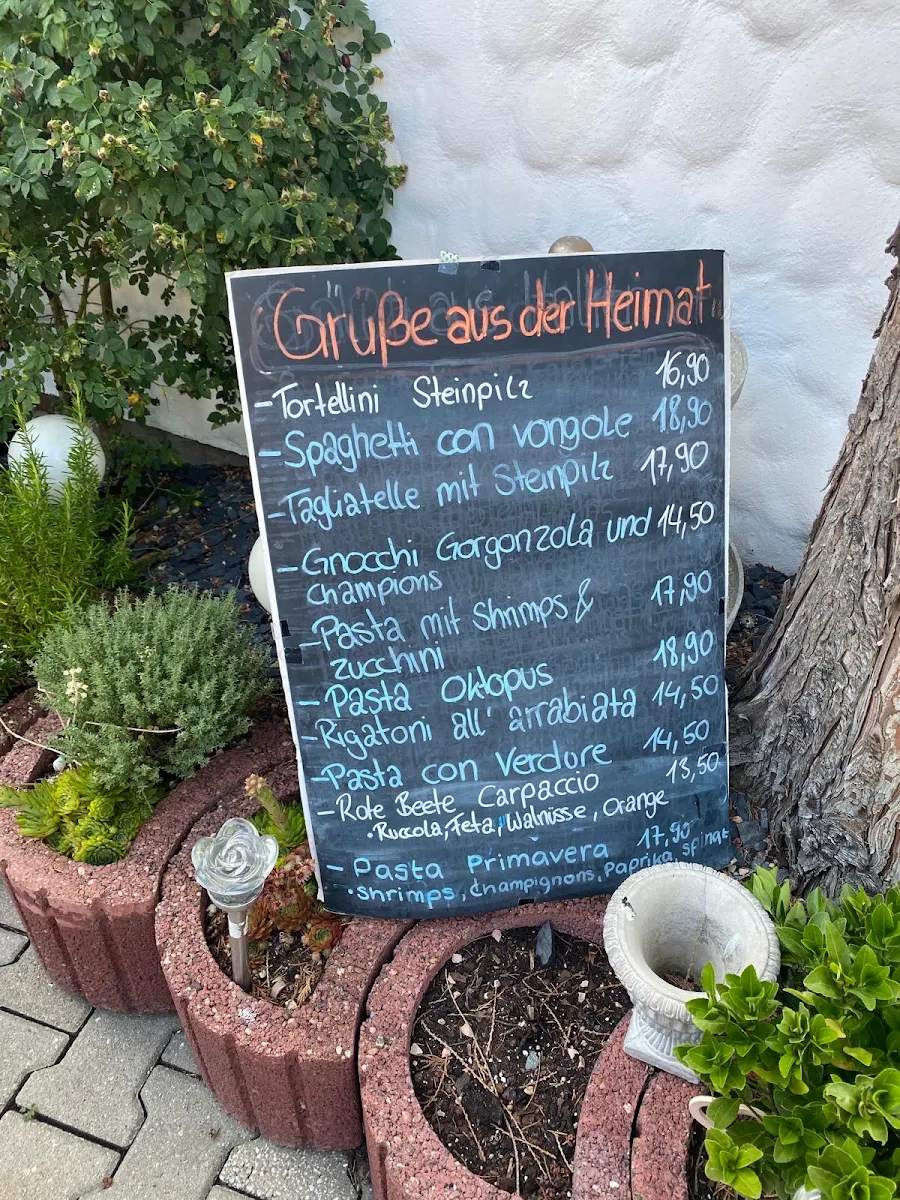 Grüße aus der Heimat
- Tortellini Steinpilz 16,90
- Spaghetti con vongole 18,90
- Tagliatelle mit Steinpilz 17,90
- Gnocchi Gorgonzola und 14,50
champions
- Pasta mit Shrimps & 17,90
zucchini
- Pasta Oktopus 18,90
- Rigatoni all' arrabiata 14,50
- Pasta con Verdure 14,50
- Rote Beete Carpaccio 13,50
. Ruccola, Feta, Walnüsse, Orange
- Pasta Primavera 17,90
. shrimps, champignons, Paprika, spinat